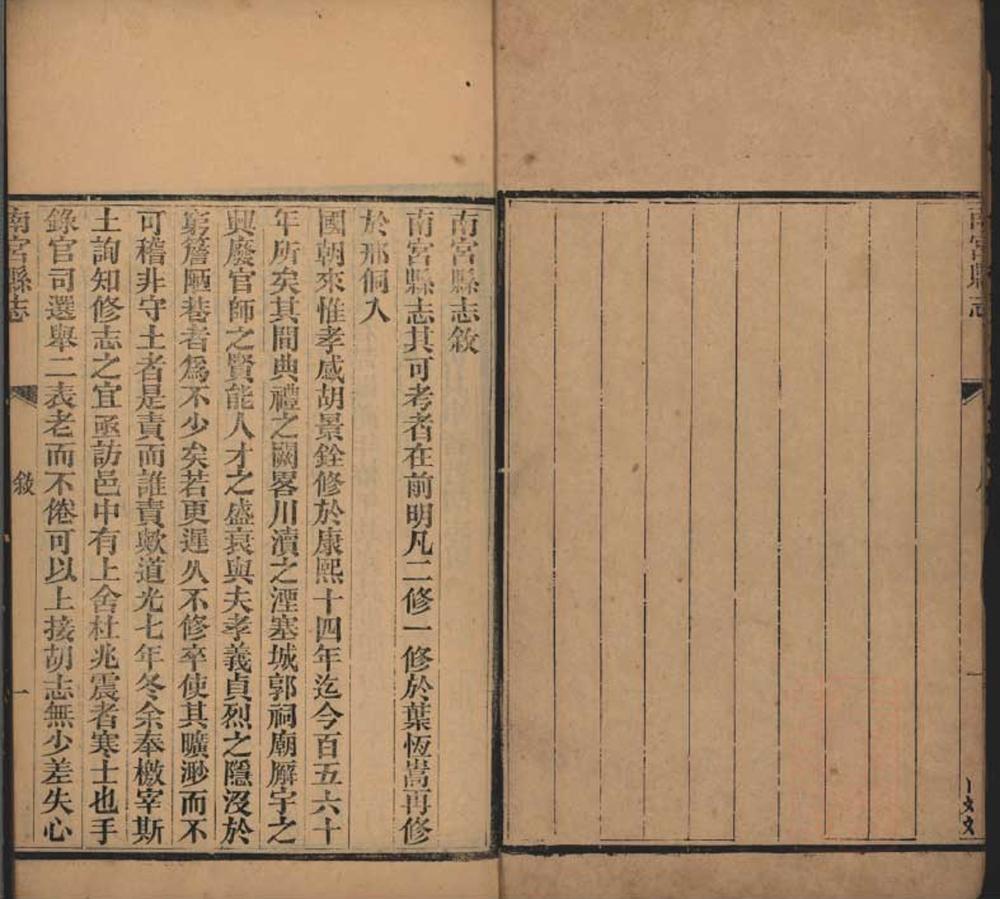 南宮縣志
南宮縣志敘
南宮縣志其可考者在前明凡二修一修於葉恆嵩再修
於邢侗入
國朝來惟孝感胡景銓修於康熙十四年迄今百五六十
年所矣其間典禮之闕畧川瀆之湮塞城郭祠廟廨宇之
興廢官師之賢能人才之盛衰與夫孝義貞烈之隱沒於
窮簷陋巷者為不少矣若更遲久不修卒使其曠渺而不
可稽非守土者是責而誰責歟道光七年冬余奉檄宰斯
土詢知修志之宜亟訪邑中有上舍杜兆震者寒士也手
錄官司選舉二表老而不倦可以上接胡志無少差失心
南宮縣志 敘 一